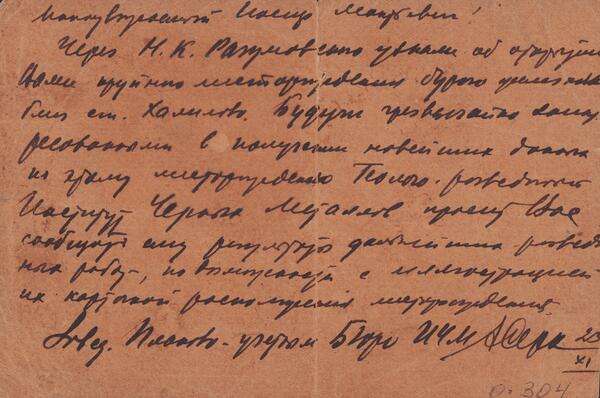 Многоуважаемый Иосиф !
Через Н. К. Разумовского узнали об открытии
Вами крупного месторождения бурого железняка
близ ст. Халилово. Будучи чрезвычайно заинте
ресованными в получении новейших данных
по этому месторождению Геолого-разведочный
Институт Черных Металлов просит Вас
сообщить ему результаты дальнейших развед
ных работ, по возможности с иллюстрацией
их карточкой расположения месторождения.
Завед. Планово-учетным Бюро ИЧМ 23
XI
0-304